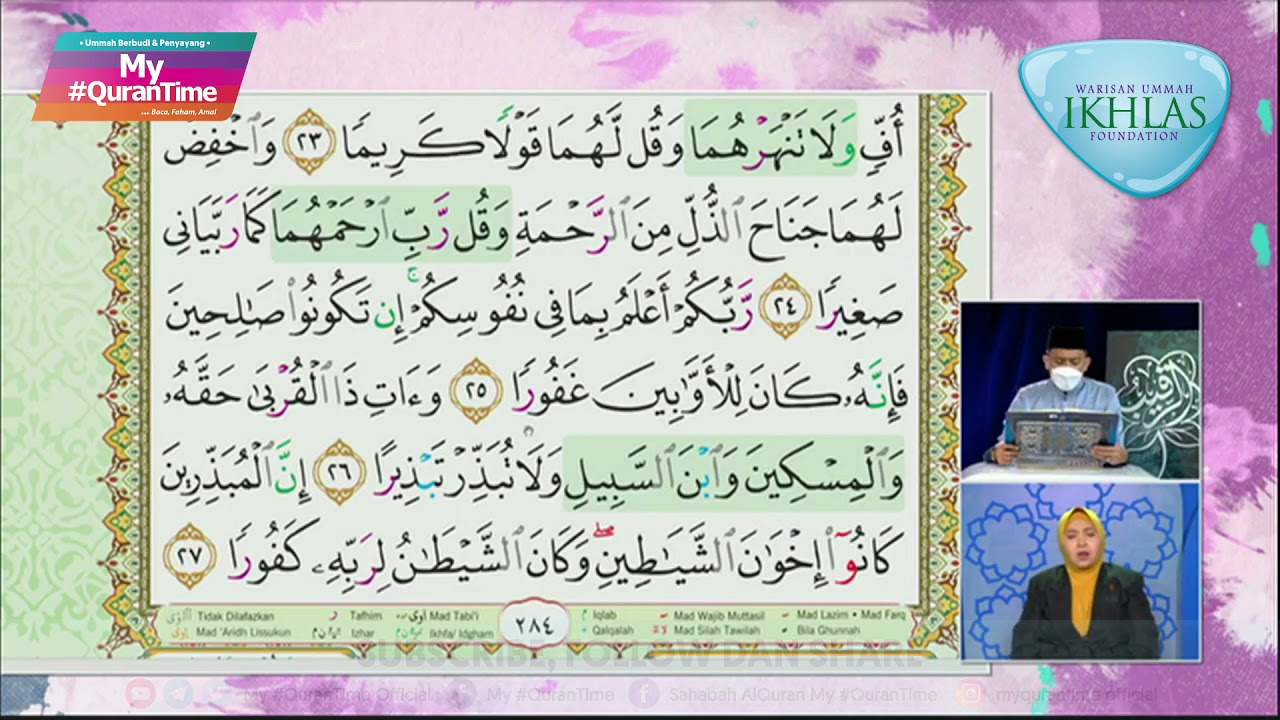 • Ummah Berbudi & Penyayang •
My
#QuranTime
... Baca, Faham, Amal
WARISAN UMMAH
IKHLAS
FOUNDATION
أُفٍّ وَلَا تَنْهَرْهُمَا وَقُل لَّهُمَا قَوْلًا كَرِيمًا ٢٣ وَٱخْفِضْ
لَهُمَا جَنَاحَ ٱلذُّلِّ مِنَ ٱلرَّحْمَةِ وَقُل رَّبِّ ٱرْحَمْهُمَا كَمَا رَبَّيَانِى
صَغِيرًا ٢٤ رَّبُّكُمْ أَعْلَمُ بِمَا فِى نُفُوسِكُمْ ۚ إِن تَكُونُوا۟ صَـٰلِحِينَ
فَإِنَّهُۥ كَانَ لِلْأَوَّٰبِينَ غَفُورًا ٢٥ وَءَاتِ ذَا ٱلْقُرْبَىٰ حَقَّهُۥ
وَٱلْمِسْكِينَ وَٱبْنَ ٱلسَّبِيلِ وَلَا تُبَذِّرْ تَبْذِيرًا ٢٦ إِنَّ ٱلْمُبَذِّرِينَ
كَانُوٓا۟ إِخْوَٰنَ ٱلشَّيَـٰطِينِ ۖ وَكَانَ ٱلشَّيْطَـٰنُ لِرَبِّهِۦ كَفُورًا ٢٧
Tidak Dilafazkan Tafhim Mad Tabi'i Iqlab Mad Wajib Muttasil Mad Lazim • Mad Farq
Mad 'Aridh Lissukun Izhar Ikhfa/ Idgham ٢٨٤ Qalqalah Mad Silah Tawilah Bila Ghunnah
SUBSCRIBE, FOLLOW DAN SHARE
My #QuranTime Official My #QuranTime Sahabah AlQuran My #QuranTime myqurantime.official